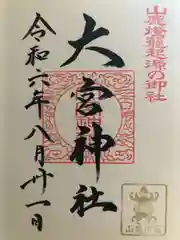 山鹿燈籠起源の御社
大宮神社
令和六年八月卅一日